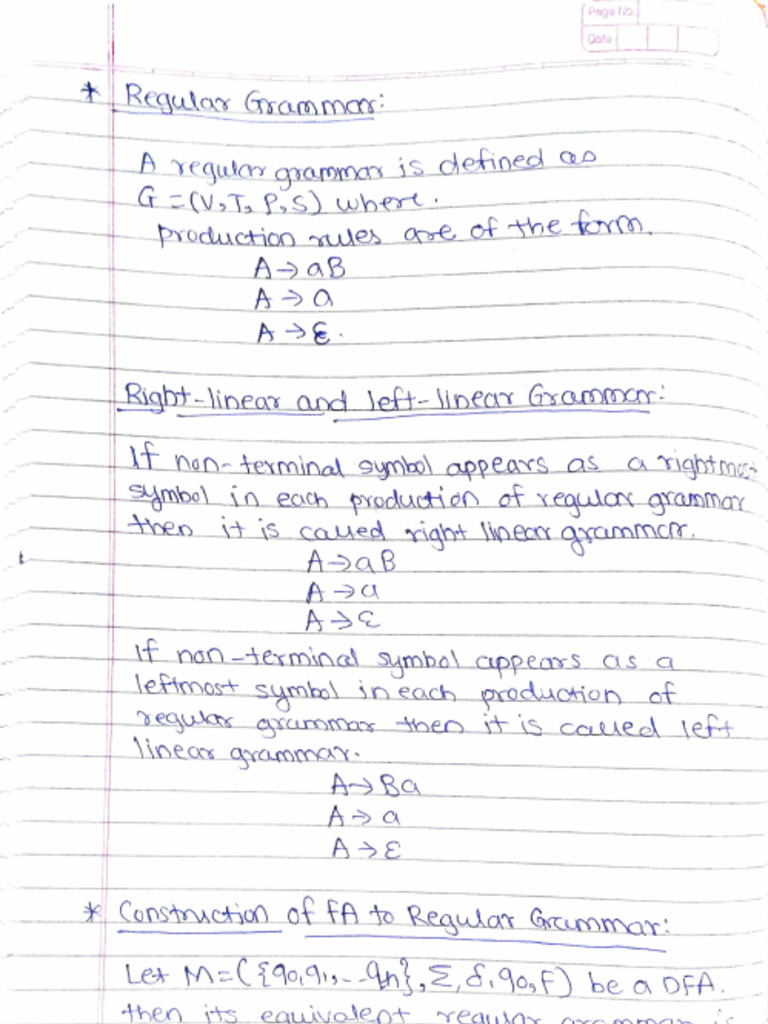 Page No.
Date
* Regular Grammar:
A regular grammar is defined as
G = (V, T, P, S) where.
production rules are of the form.
A → aB
A → a
A → ε.
Right-linear and left-linear Grammar:
If non-terminal symbol appears as a rightmost
symbol in each production of regular grammar
then it is called right linear grammar.
A → aB
A → a
A → ε
If non-terminal symbol appears as a
leftmost symbol in each production of
regular grammar then it is called left
linear grammar.
A → Ba
A → a
A → ε
* Construction of FA to Regular Grammar:
Let M = ({q0, q1, -- qn}, Σ, δ, q0, F) be a DFA.
then its equivalent regular grammar is